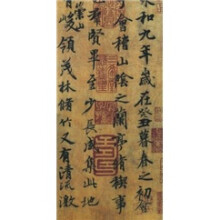 永和九年歲在癸丑暮春之初會
會稽山陰之蘭亭脩禊事
羣賢畢至少長咸集此地
崇山峻領茂林脩竹又有清流激